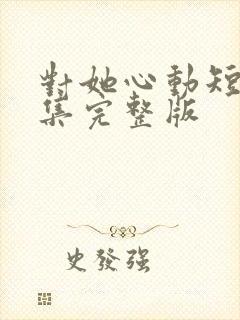 對她心動短
集完整版
史發強